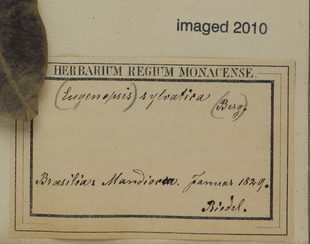 imaged 2010
HERBARIUM REGIUM MONACENSE.
(Eugenopsis) sylvatica
(Berg.
Brasilia: Mandiocca. Januar 1829.
Riedel.